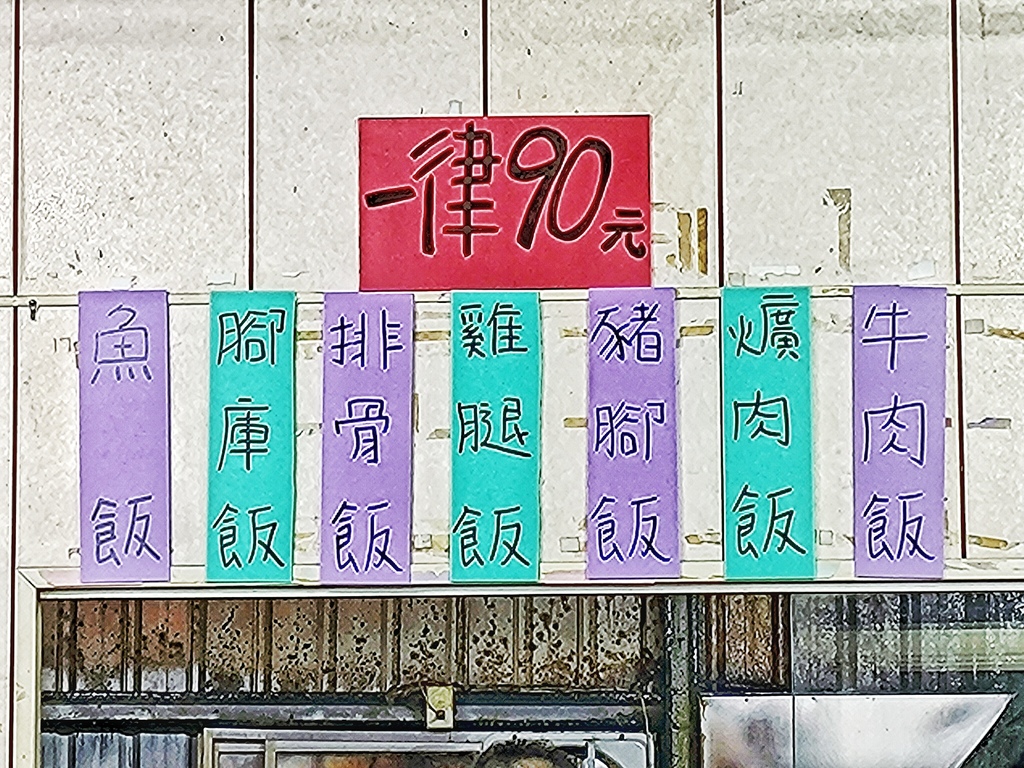 一律90元
魚飯
腳庫飯
排骨飯
雞腿飯
豬腳飯
爌肉飯
牛肉飯